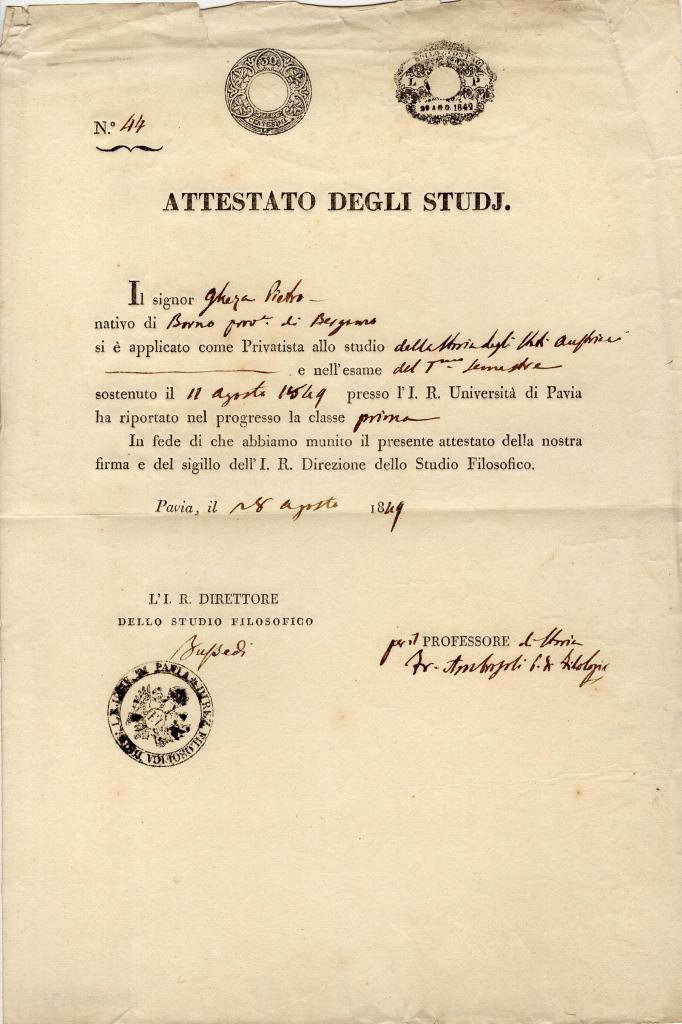 30
CENTESIMI
BOLLO
L P
AGO. 1849
N.º 44
ATTESTATO DEGLI STUDJ.
Il signor Gheza Pietro
nativo di Borno prov.ª di Bergamo
si è applicato come Privatista allo studio della Storia degli Stati Austriaci
e nell'esame del semestre
sostenuto il 11 agosto 1849 presso l'I. R. Università di Pavia
ha riportato nel progresso la classe prima
In fede di che abbiamo munito il presente attestato della nostra
firma e del sigillo dell'I. R. Direzione dello Studio Filosofico.
Pavia, il 28 agosto 1849
L'I. R. DIRETTORE
DELLO STUDIO FILOSOFICO
per il PROFESSORE di Storia
Fr. Ambrosoli P. di Filologia
PAVIA DIREZ. FILOSOFICA